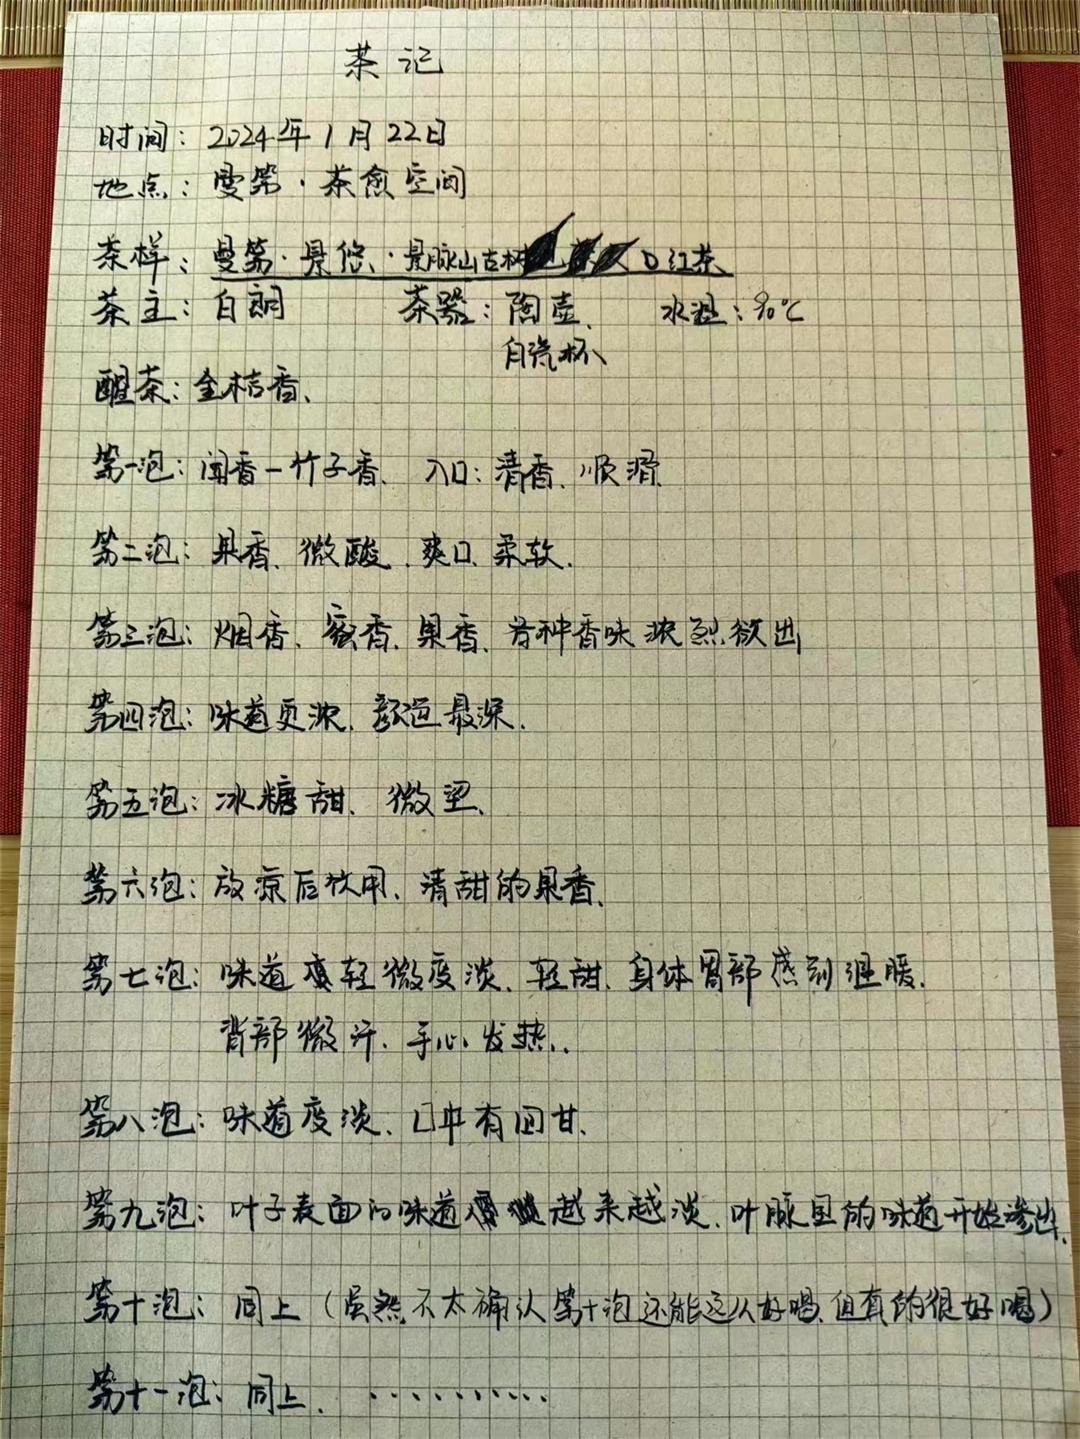 茶记
时间：2024年1月22日
地点：曼第·茶愈空间
茶样：曼第·景悠·景脉山古树红茶
茶主：白朗 茶器：陶壶、 水温：90℃
白瓷杯
醒茶：金桔香、
第一泡：闻香—竹子香、入口：清香、顺滑
第二泡：果香、微酸、爽口、柔软.
第三泡：烟香、蜜香、果香、各种香味浓烈欲出
第四泡：味道更浓、颜色最深.
第五泡：冰糖甜、微涩、
第六泡：放凉后饮用、清甜的果香、
第七泡：味道变轻微变淡、轻甜、身体胃部感到温暖.
背部微汗、手心发热.
第八泡：味道变淡、口中有回甘.
第九泡：叶子表面的味道越来越淡、叶脉里的味道开始渗出、
第十泡：同上（虽然不太确认第十泡还能这么好喝、但真的很好喝）
第十一泡：同上、..........